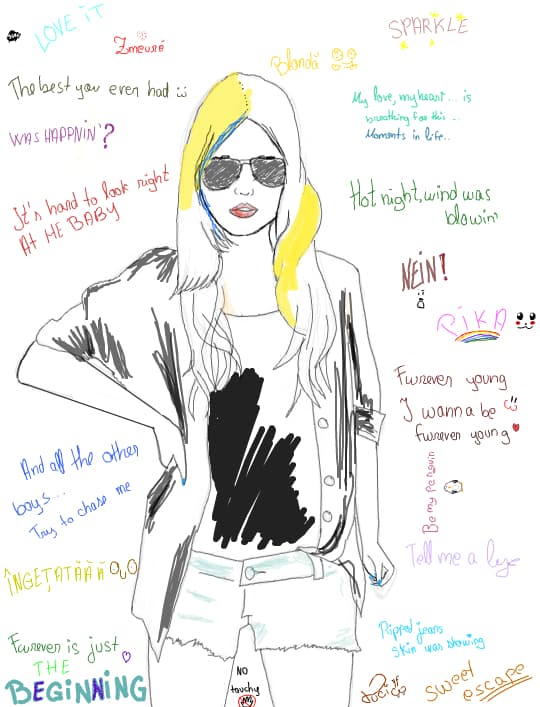 LOVE iT
SPARKLE
Zmeură
Blondă
The best you ever had
My love, my heart... is
breathing for this...
Moments in life..
WAS HAPPNIN'?
It's hard to look right
At ME BABY
Hot night, wind was
blowin'
NEiN!
PiKA
Furever young
I wanna be
furever young
And all the other
boys...
Try to chase me
Be my penguin
Tell me a
ÎNGEȚATĂĂĂ
Ripped jeans
skin was showing
Furever is just
THE
BEGINNING
NO
touchy
sweet
escape